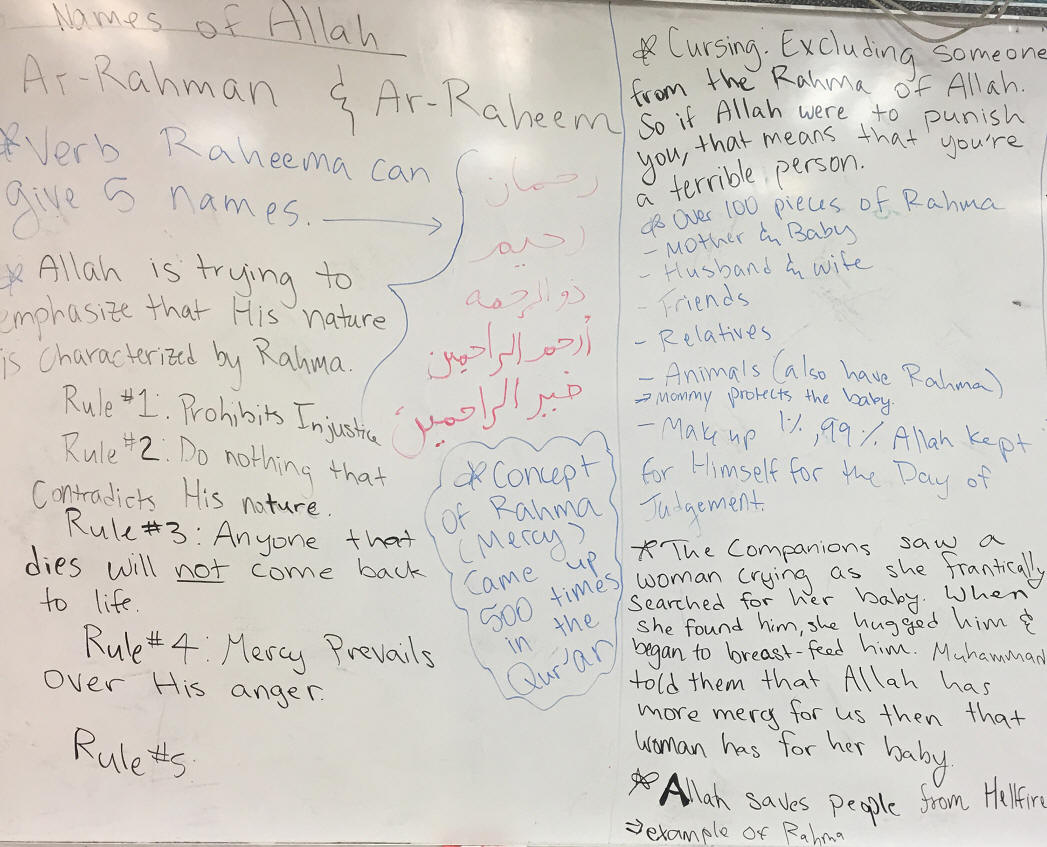 Names of Allah
Ar-Rahman & Ar-Raheem
* Verb Raheema can
give 5 names. →
رحمان
رحيم
ذو الرحمه
أرحم الراحمين
خير الراحمين
* Allah is trying to
emphasize that His nature
is characterized by Rahma.
Rule #1: Prohibits Injustice
Rule #2: Do nothing that
Contradicts His nature.
Rule #3: Anyone that
dies will not come back
to life.
Rule #4: Mercy Prevails
Over His anger.
Rule #5
* Concept
Of Rahma
(Mercy)
Came up
500 times
in the
Qur'an
* Cursing: Excluding someone
from the Rahma of Allah.
So if Allah were to punish
you, that means that you're
a terrible person.
* Over 100 pieces of Rahma
- Mother & Baby
- Husband & wife
- Friends
- Relatives
- Animals (also have Rahma)
⇒ Mommy protects the baby.
- Make up 1%, 99% Allah kept
for Himself for the Day of
Judgement.
* The Companions saw a
woman crying as she frantically
searched for her baby. When
she found him, she hugged him &
began to breast-feed him. Muhammad
told them that Allah has
more mercy for us then that
woman has for her baby.
* Allah saves people from Hellfire
⇒ example of Rahma